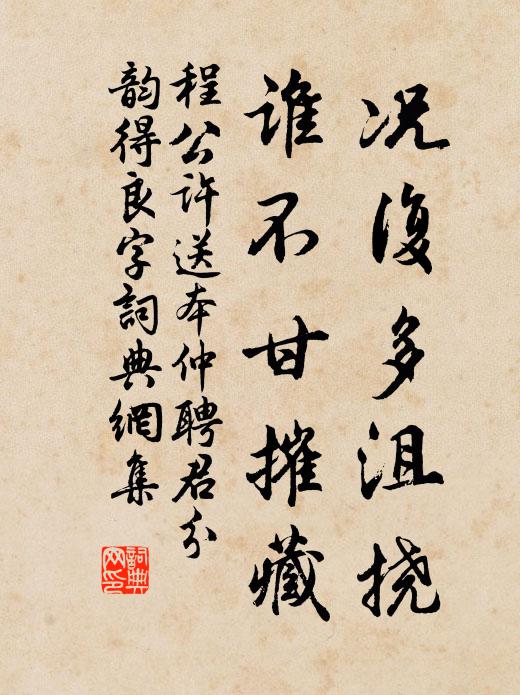 况復多沮挠
誰不甘摧藏
程公许送李仲聘君分
韵得良字詞典網集
詞典
网印